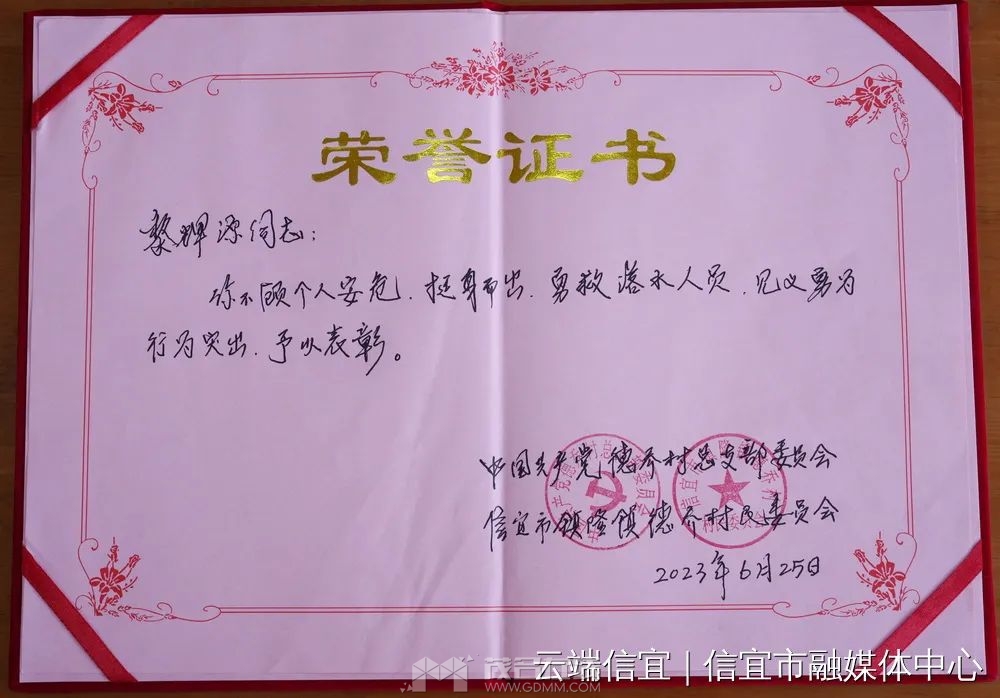 荣誉证书
黎輝源同志：
你不顾个人安危，挺身而出，勇救落水人员，见义勇为
行为突出，予以表彰。
中国共产党德乔村总支部委员会
信宜市镇隆镇德乔村民委员会
2023年6月25日
云端信宜 | 信宜市融媒体中心
WWW.GDMM.COM